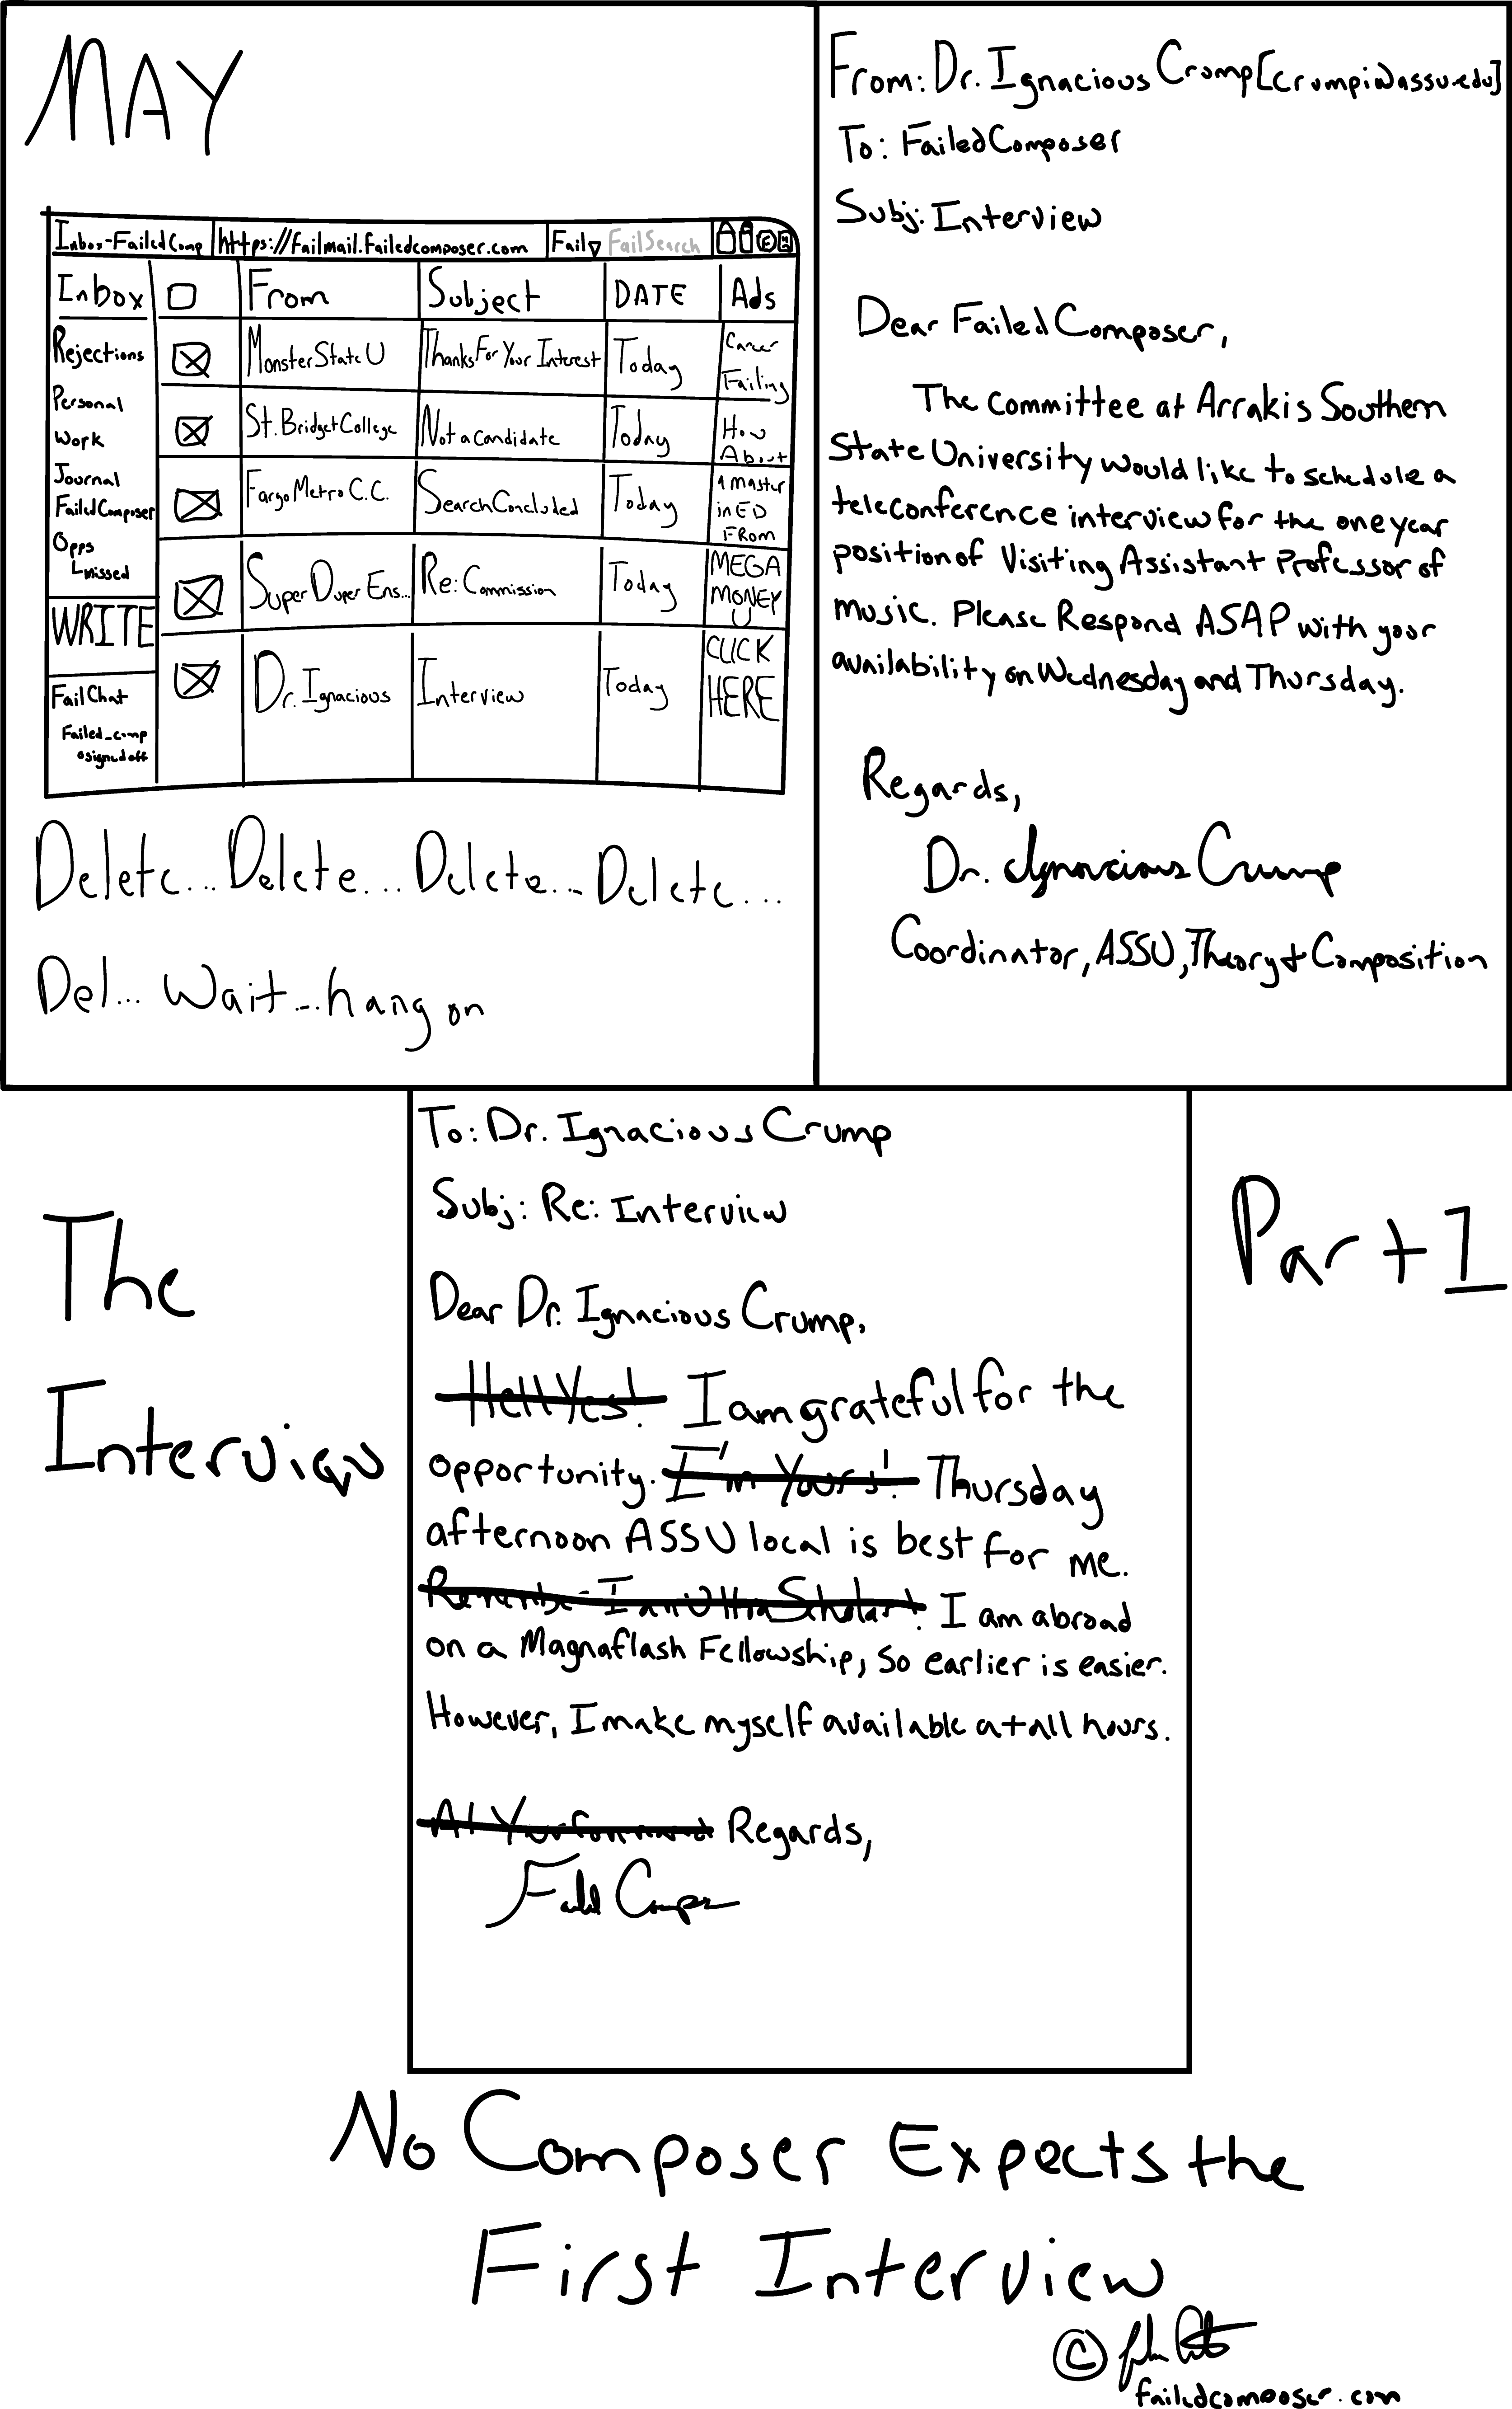 MAY
Inbox-FailedComp https://failmail.failedcomposer.com Fail FailSearch
Inbox From Subject DATE Ads
Rejections
Personal
Work
Journal
FailedComposer
Opps
Missed
WRITE
FailChat
Failed_comp
signed off
MonsterStateU Thanks For Your Interest Today
St. Bridget College Not a Candidate Today
Fargo Metro C.C. Search Concluded Today
Super Duper Ens... Re: Commission Today
Dr. Ignacious Interview Today
Career
Failing
How
About
A Master
in ED
FROM
MEGA
MONEY
U
CLICK
HERE
Delete... Delete... Delete... Delete...
Del... Wait... hang on
From: Dr. Ignacious Crump [crumpi@assu.edu]
To: FailedComposer
Subj: Interview
Dear FailedComposer,
The committee at Arrakis Southern
State University would like to schedule a
teleconference interview for the one year
position of Visiting Assistant Professor of
Music. Please Respond ASAP with your
availability on Wednesday and Thursday.
Regards,
Dr. Ignacious Crump
Coordinator, ASSU, Theory + Composition
The
Interview
To: Dr. Ignacious Crump
Subj: Re: Interview
Dear Dr. Ignacious Crump,
Hell Yes! I am grateful for the
opportunity. I'm Yours! Thursday
afternoon ASSU local is best for me.
Remember I am Ultra Scholar! I am abroad
on a Magnaflash Fellowship, so earlier is easier.
However, I make myself available at all hours.
At Your Command Regards,
Failed Composer
Part I
No Composer Expects the
First Interview
©
failedcomposer.com